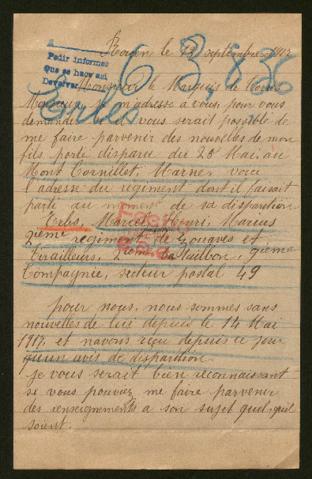 le 13 septembre 1917
Pedir informes
Que se hace así
Devolver
63836
Erbs
Monsieur le Marquis de
Monsieur, je m'adresse a vous pour vous
demander s'il vous serait possible de
me faire parvenir des nouvelles de mon
fils porté disparu du 23 Mai, au
Mont Cornillet, Marne, voici
l'adresse du régiment dont il faisait
partie au moment de sa disparition
Erbs, Marcel, Henri, Marius
régiment de Zouaves et
Tirailleurs, Bataillon,
Compagnie, secteur postal 49
pour nous, nous sommes sans
nouvelles de lui depuis le 14 Mai
1917, et navons reçu depuis ce jour
qu'un avis de disparition.
je vous serait bien reconnaissant
si vous pouvez me faire parvenir
des renseignements a son sujet quel-qu'il
soient.